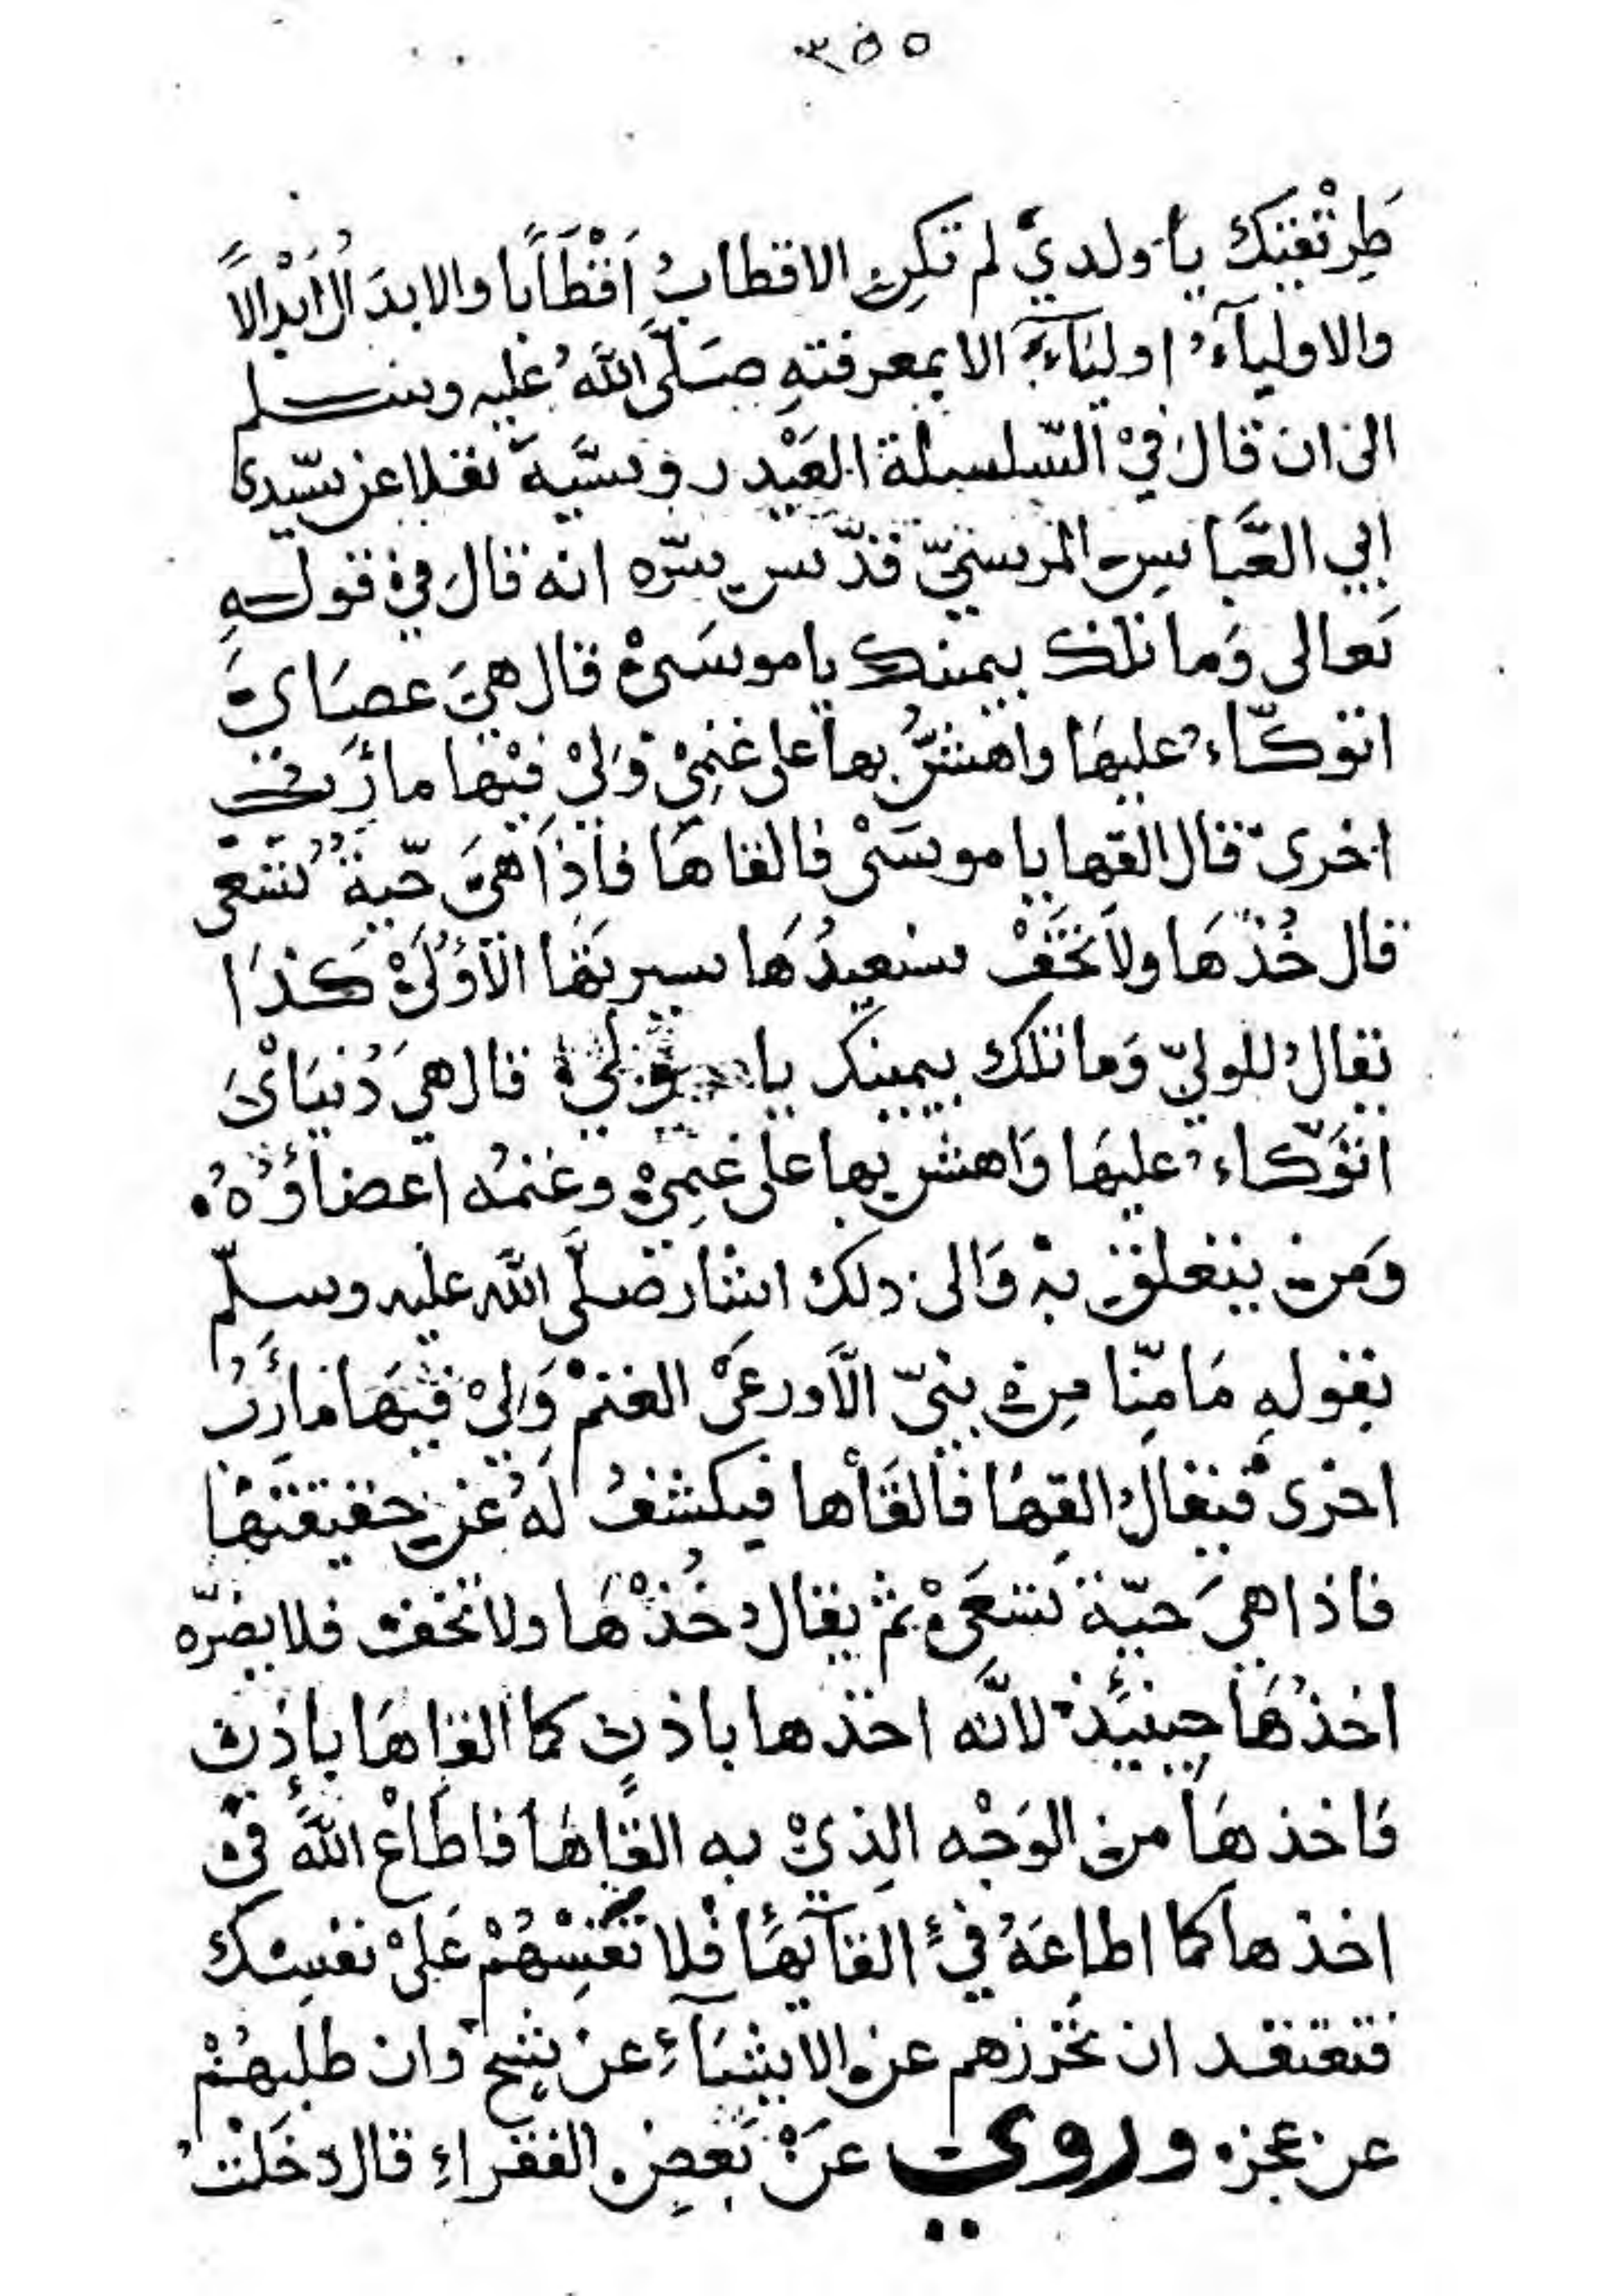 ٣٥٥
طِرْتقَتِك يا ولدي لم تكن الاقطابُ اَقْطَابا والابدَالُ اَبْدالاً
والاوليآءُ اوليَآءَ الا بمعرفتهِ صَلَّى اللَّهُ عليه وسلم
الى ان قالَ في السّلسلة العَيْدروسيَّة نقلا عن سيّدى
ابي العَّباس المرسيّ قدّس سرّه انه قالَ في قولهِ
تعالى وَما تلك بيمينك يا موسَى قال هيَ عصَاىَ
اتوكّاءُ عليهَا واهشُّ بها على غنمِيْ وَليْ فيْها مأرب
اخرى قال القها يا موسَىْ فالقاهَا فاذَا هيَ حّيةُ تسْعى
قال خُذْهَا ولا تَخَفْ سنعيدُهَا سيرتهَا الاُوْلىْ كذَا
يقالُ للوليّ وَما تلك بيمينك يا وليُّ قال هيَ دُنيَاىَ
اتوَكّاءُ عليهَا وَاهش بها على غنمِيْ وغنمُه اعضاؤُهُ
وَمن يتعلق بهْ وَالى ذلك اشار صَلَّى اللّه عليه وسلّم
بقولهِ مَا مِنّا مِنْ نبيّ الّا ورعَىْ الغنمْ وَليْ فيهَا مَأرِبُ
اخرى فيقالُ القِهَا فالقَاْها فيكشفُ لهُ عن حقيقتهَا
فاذا هيَ حيّة تسْعَىْ ثم يقالُ خُذْهَا ولا تخف فلا يضرّه
اخذُهَا حينئِذ لانَّه اخذها باذنٍ كما القاهَا باذنٍ
فَاخذهَا من الوَجْه الذِىْ به القاهَا فاطاْع اللّهَ في
اخذها كما اطاعَهُ في القآئِهَا فلا تَقسْهُمْ عَلىْ نفسِك
فتعتقد ان تحرزهم عن الاشيَآءِ عن شح وان طلبهُمْ
عن عجزه وروي عَنْ بَعضِ الفقراءِ قال دخَلْتُ